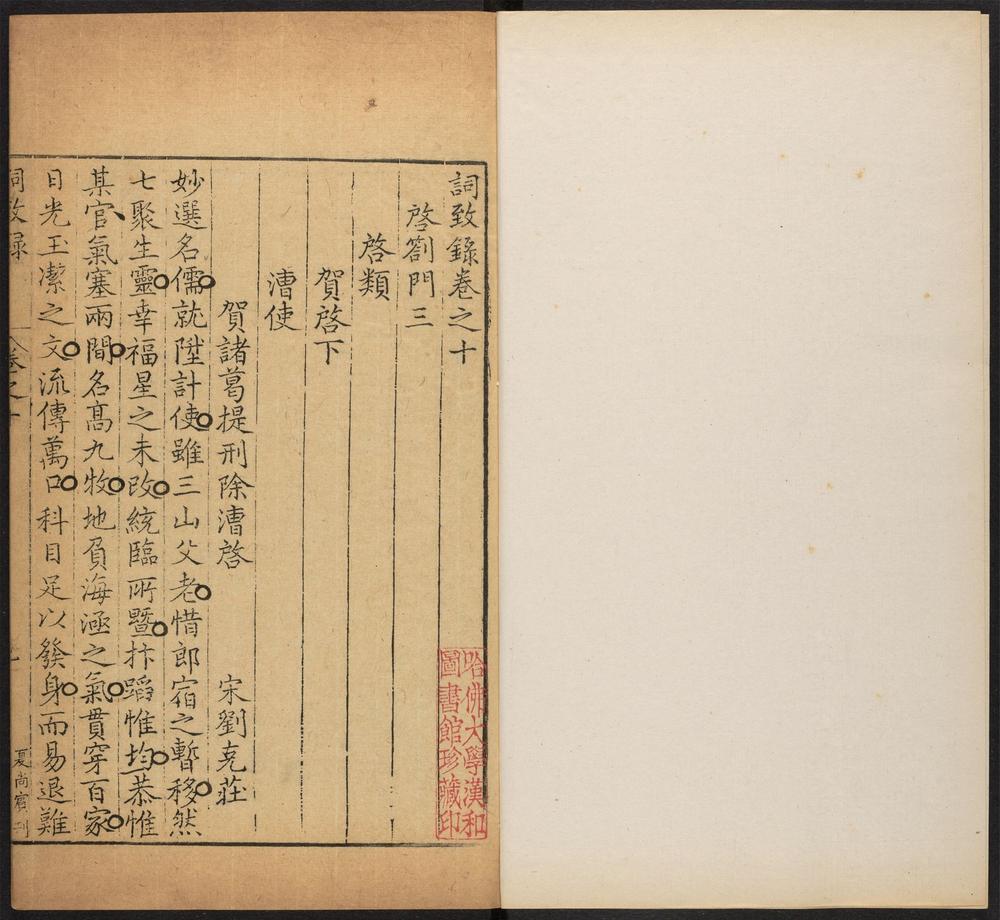 詞致錄卷之十
啓劄門三
啓類
賀啓下
漕使
賀諸葛提刑除漕啓 宋劉克莊
妙選名儒就陞計使雖三山父老惜郎宿之暫移然
七聚生靈幸福星之未改統臨所曁抃蹈惟均恭惟
某官氣塞兩間名高九牧地負海涵之氣貫穿百家
日光玉潔之文流傳萬口科目足以發身而易退難
詞致録 卷之十
夏尚賓刊
哈佛大學漢和
圖書館珍藏印